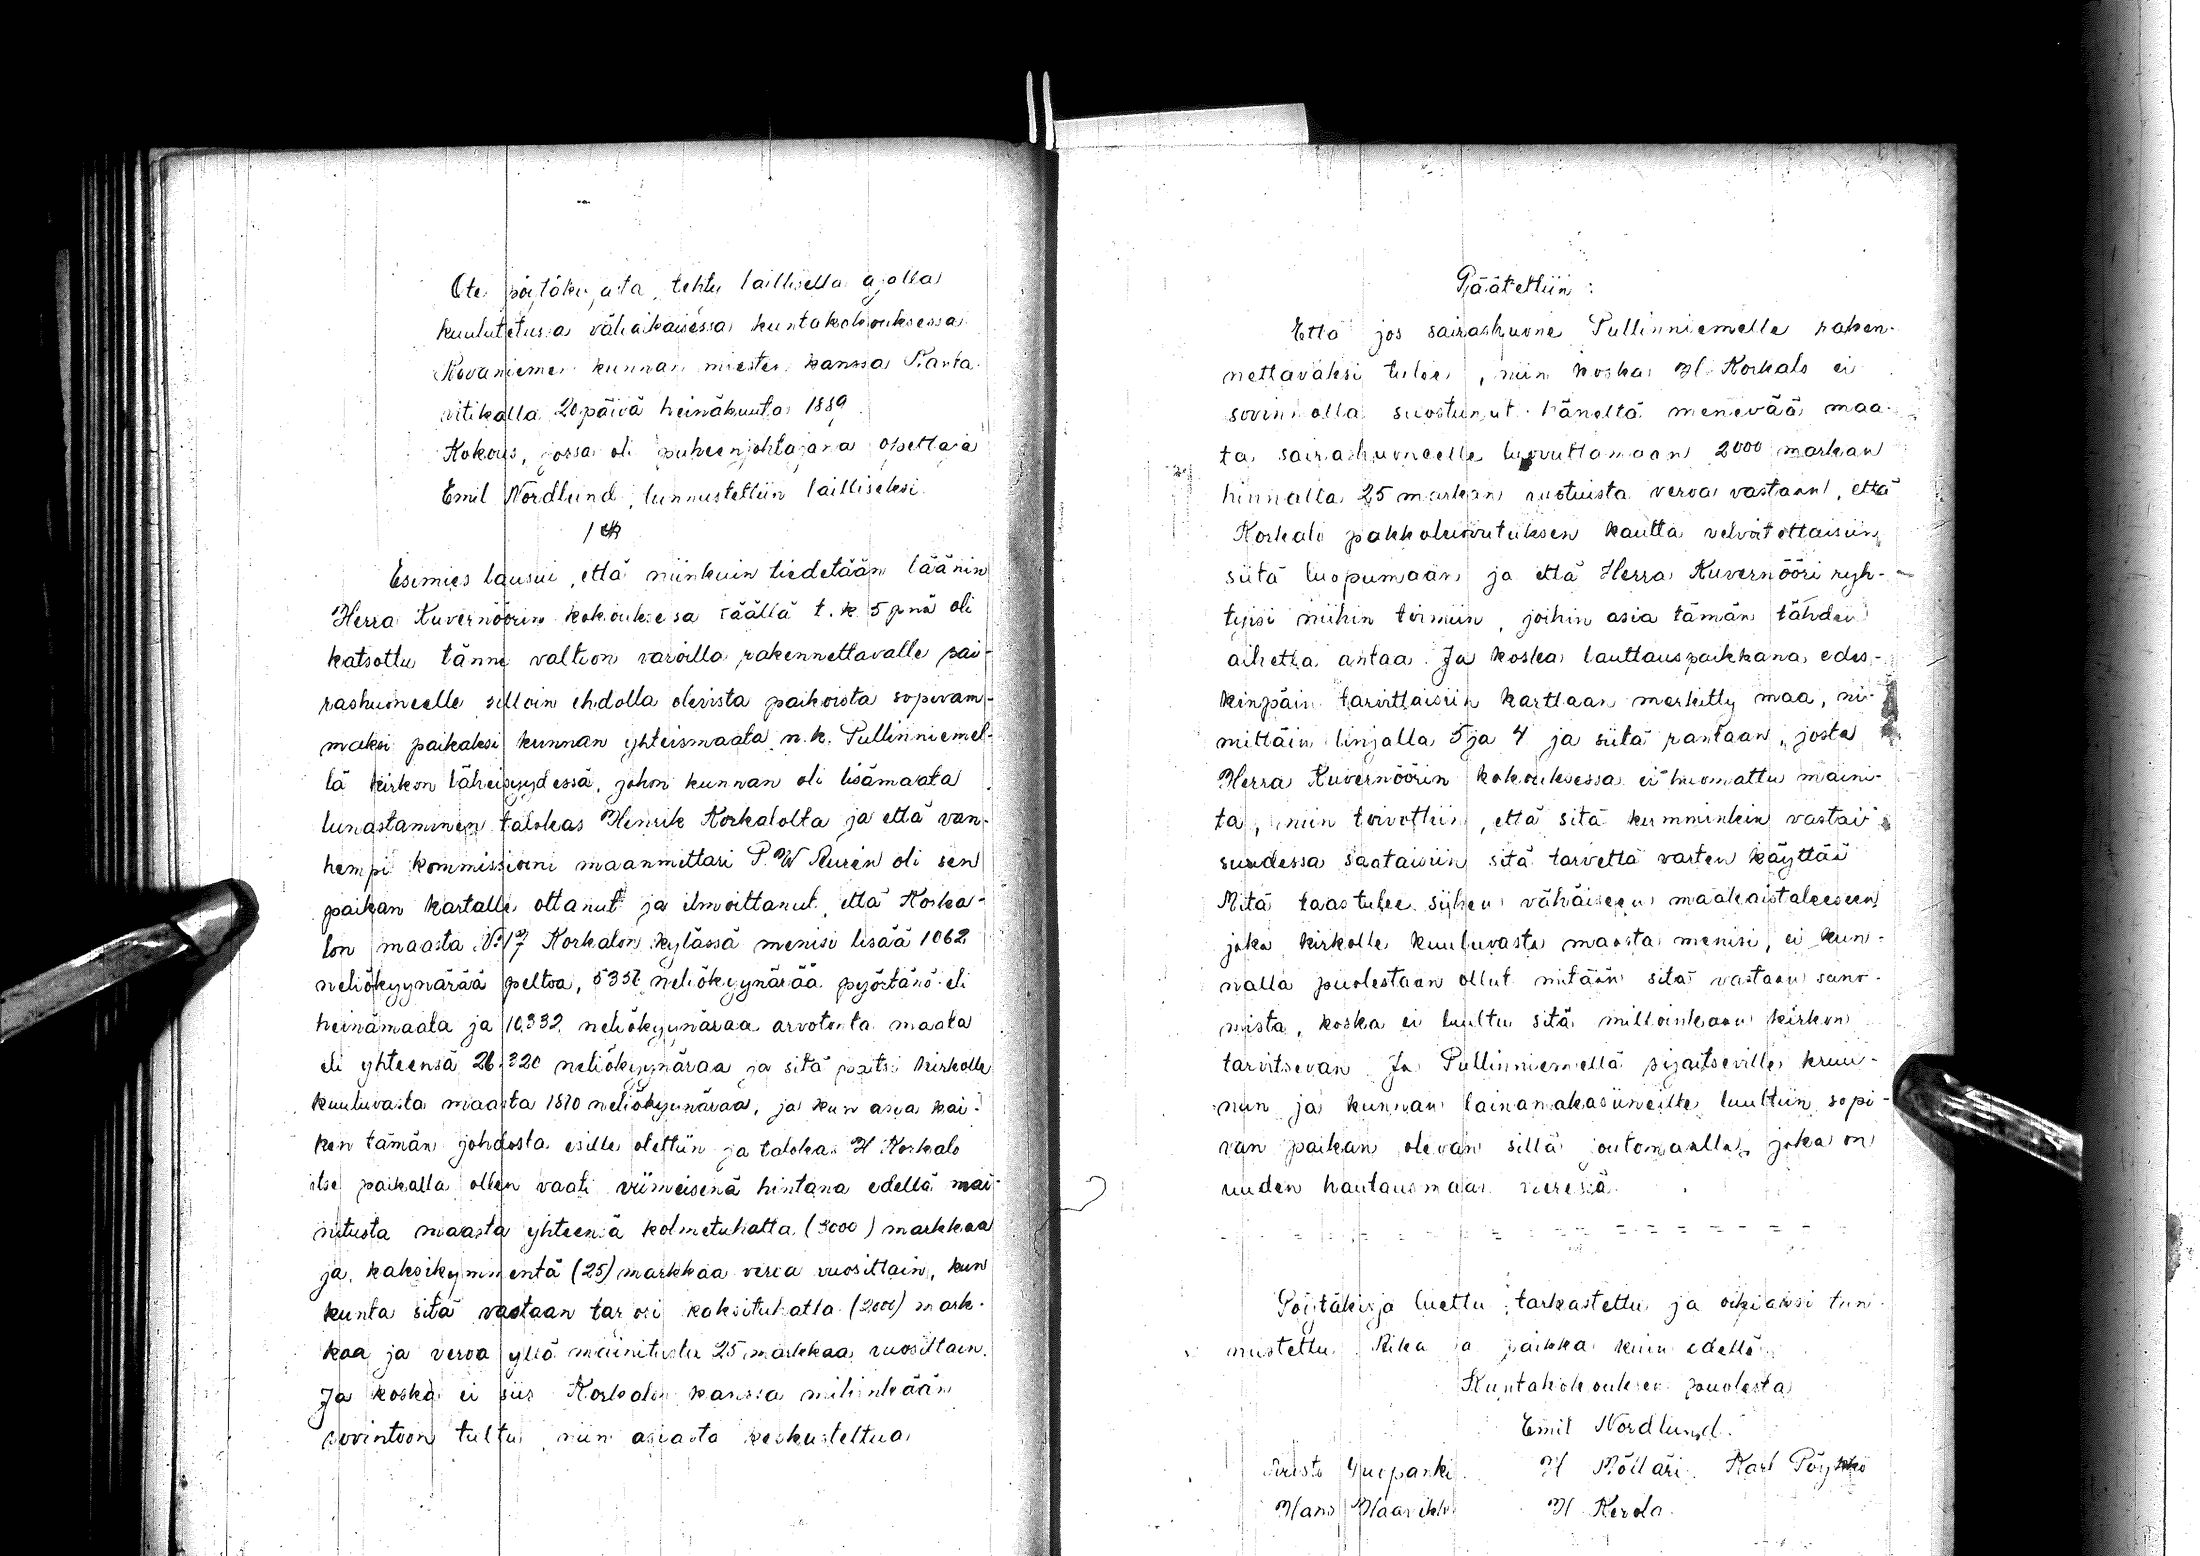 Ote pöytäkirjasta, tehty laillisella ajalla
kuulutetussa väliaikaisessa kuntakokouksessa
Rovaniemen kunnan miesten kanssa Ranta-
vitikalla 20 päivä heinäkuuta 1889.
Kokous, jossa oli puheenjohtajana opettaja
Emil Nordlund, tunnustettiin lailliseksi.
1 §
Esimies lausui, että niinkuin tiedetään läänin
Herra Kuvernöörin kokouksesa täällä t. k. 5 pnä oli
katsottu tänne valtion varoilla rakennettavalle sai-
rashuoneelle silloin ehdolla olevista paikoista sopivam-
maksi paikaksi kunnan yhteismaata n. k. Pullinniemel-
lä kirkon läheisyydessä, johon kunnan oli lisämaata
lunastaminen talokas Henrik Korkalolta ja että van-
hempi kommissioni maanmittari P. W. Aurén oli sen
paikan kartalle ottanut ja ilmoittanut, että Korka-
lon maasta No 17 Korkalon kylässä menisi lisää 1062
neliökyynärää peltoa, 5352 neliökyynärää pyörtänö eli
heinämaata ja 10,332 neliökyynäraa arvotonta maata
eli yhteensä 26,320 neliökyynäraa ja sitä paitsi kirkolle
kuuluvasta maasta 1810 neliökyynäraa, ja kun asia kai-
ken tämän johdosta esille otettiin ja talokas H Korkalo
itse paikalla ollen vaati viimeisenä hintana edellä mai-
nitusta maasta yhteensä kolmetuhatta (3000) markkaa
ja kaksikymmentä (25) markkaa veroa vuosittain, kun
kunta sitä vastaan tarjosi kaksituhatta (2000) mark-
kaa ja veroa yllä mainitusta 25 markkaa vuosittain.
Ja koska ei siis Korkalon kanssa mihinkään
sovintoon tultu, niin asiasta keskusteltua
Päätettiin:
Että jos sairashuone Pullinniemelle raken-
nettavaksi tulee, niin koska H. Korkalo ei
sovinnolla suostunut häneltä menevää maa-
ta sairashuoneelle luovuttamaan 2000 markan
hinnalla 25 markan vuotuista veroa vastaan, että
Korkalo pakkoluovutuksen kautta velvoitettaisiin
siitä luopumaan ja että Herra Kuvernööri ryh-
tyisi niihin toimiin, joihin asia tämän tähden
aihetta antaa. Ja koska lauttauspaikkana edes-
kinpäin tarvittaisiin karttaan merkitty maa, ni-
mittäin linjalla 5 ja 4 ja siitä rantaan, josta
Herra Kuvernöörin kokouksessa ei huomattu maini-
ta, niin toivottiin, että sitä kumminkin vastai-
suudessa saataisiin sitä tarvetta varten käyttää
Mitä taas tulee siihen vähäiseen maakaistaleeseen
joka kirkolle kuuluvasta maasta menisi, ei kun-
nalla puolestaan ollut mitään sitä vastaan sano-
mista, koska ei luultu sitä milloinkaan kirkon
tarvitsevan. Ja Pullinniemellä sijaitseville kruu-
nun ja kunnan lainamakasiineille luultiin sopi-
van paikan olevan sillä joutomaalla, joka on
uuden hautausmaan vieressä.
Pöytäkirja luettu, tarkastettu ja oikiaksi tun-
nustettu. Aika ja paikka kuin edellä.
Kuntakokouksen puolesta
Emil Nordlund.
H Mölläri. Karl Pöykkö
Hans H. Kerola.